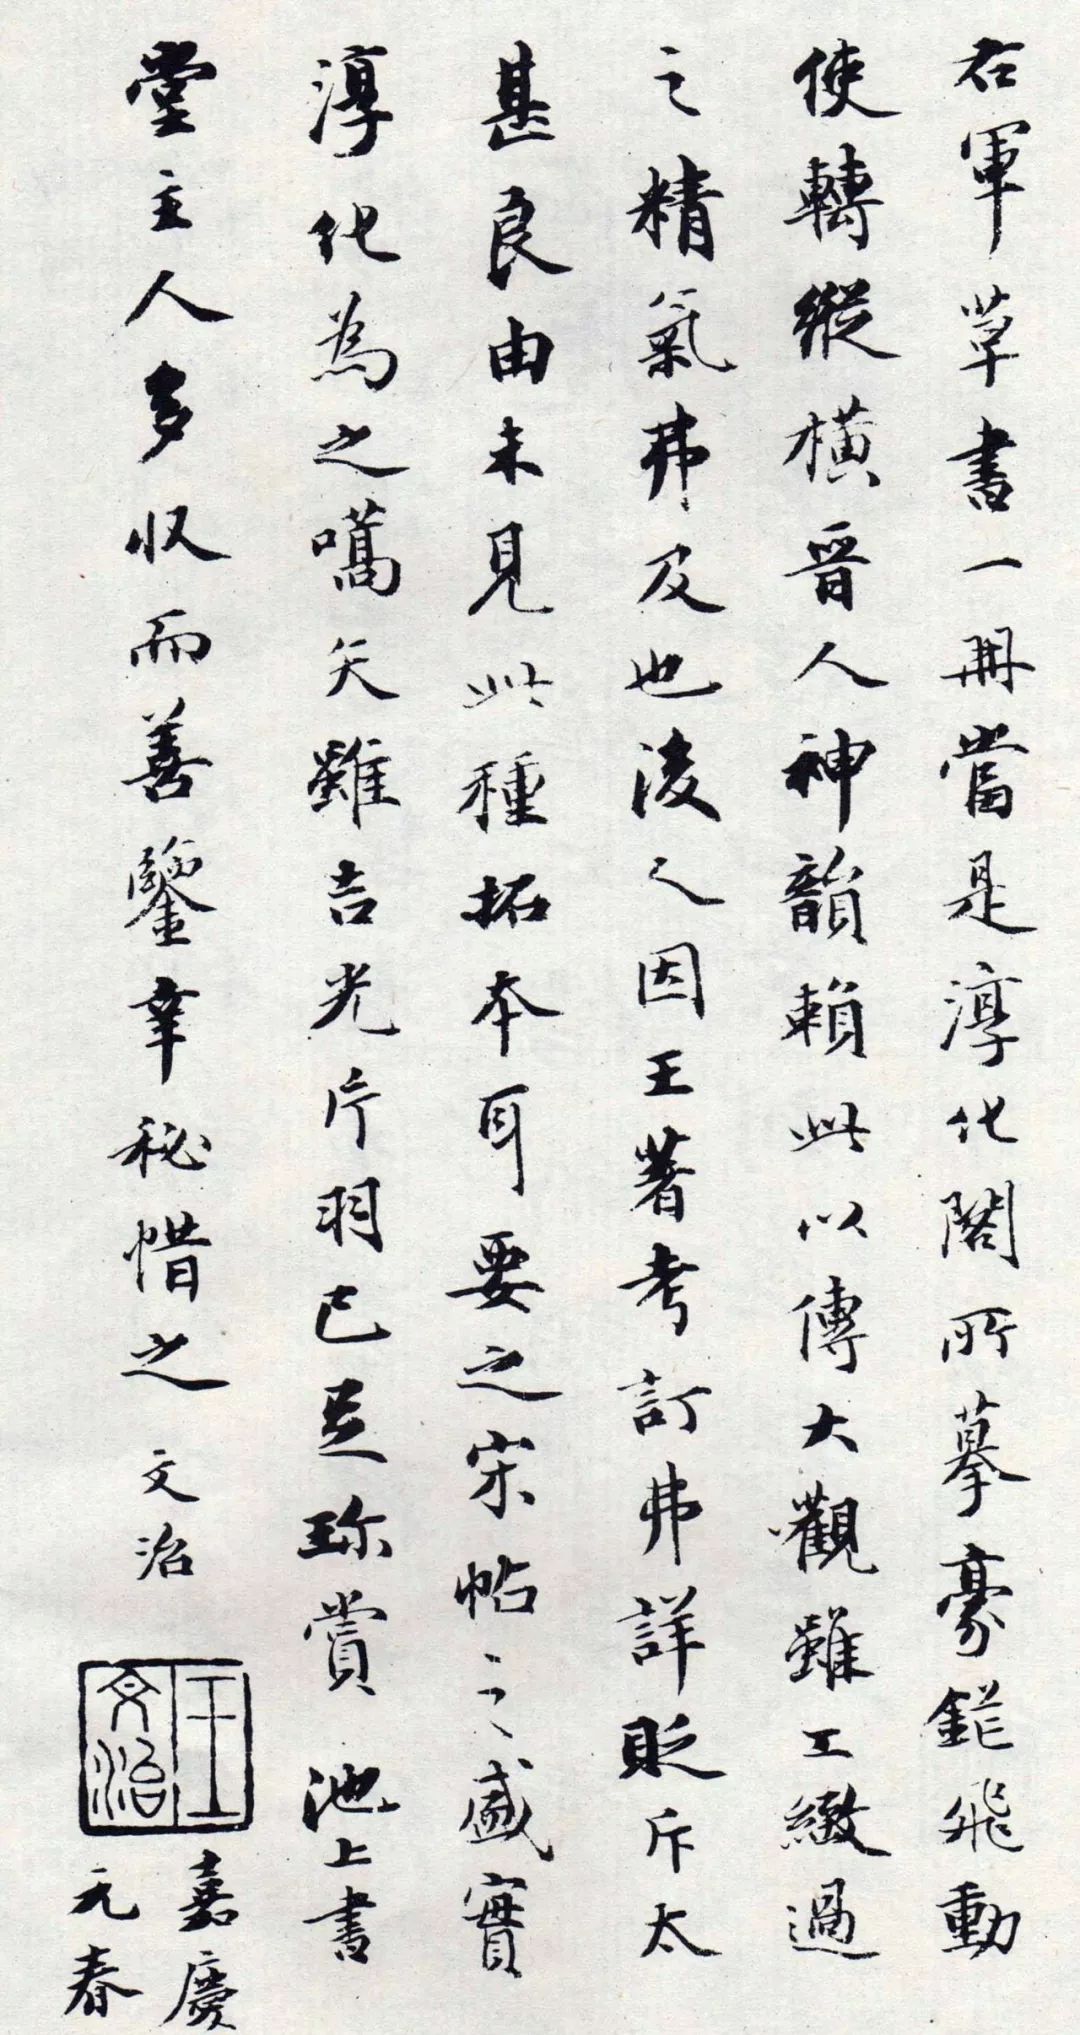 右軍草書一冊當是淳化閣所摹豪鋩飛動
使轉縱橫晉人神韻賴此以傳大觀雖工緻過
之精氣弗及也後人因王著考訂弗詳貶斥太
甚良由未見此種拓本耳要之宋帖之盛實
淳化為之嚆矢雖吉光片羽已足珎賞池上書
堂主人多收而善鑒幸秘惜之 文治
王文治
嘉慶
元春